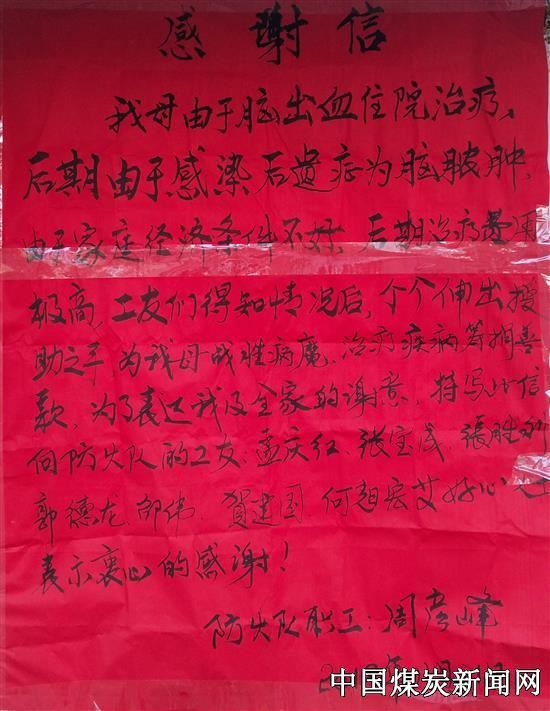 感谢信
我母由于脑出血住院治疗、
后期由于感染后遗症为脑脓肿,
由于家庭经济条件不好,后期治疗费用
极高,工友们得知情况后,个个伸出援
助之手 为我母战胜病魔、治疗疾病筹捐善
款,为了表达我及全家的谢意,特写此信
向防火队的工友:孟庆红、张宝成、張胜利
郭德龙、邵伟、贺建国、何超宏 好心人士
表示衷心的感谢!
防火队职工:周彦峰
中国煤炭新闻网